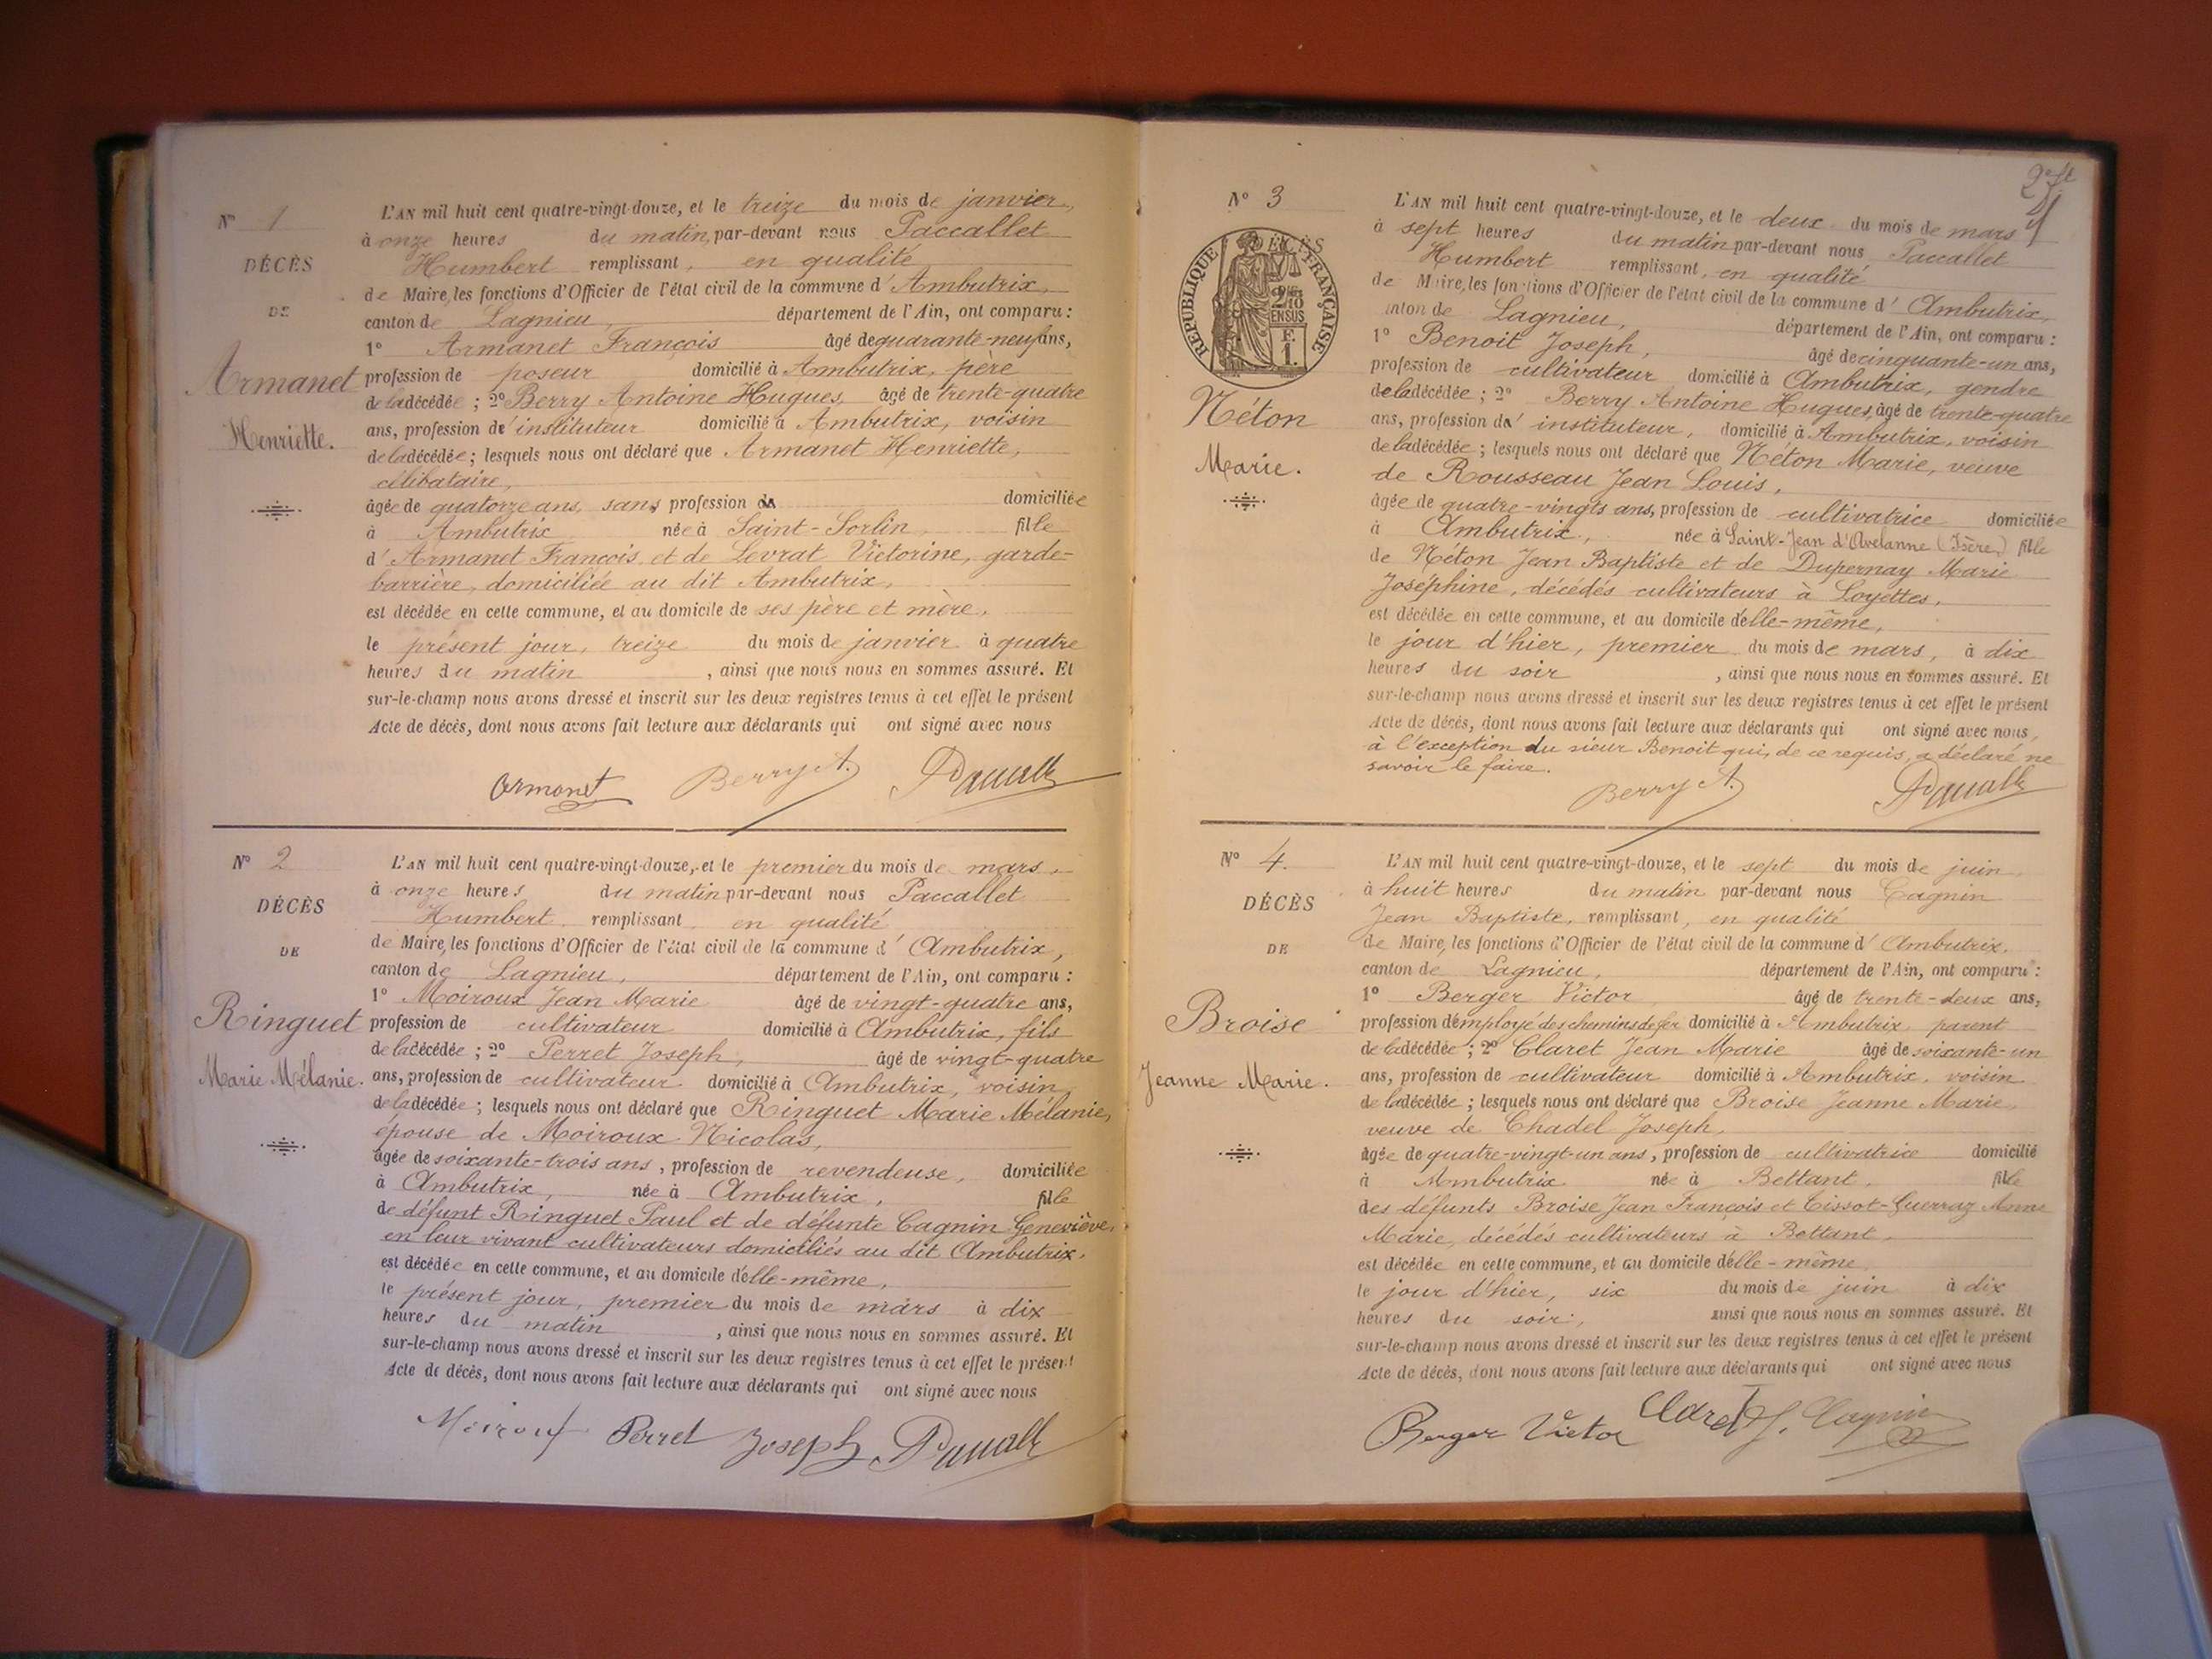 N° 1
DÉCÈS
DE
Armanet
Henriette.
L'AN mil huit cent quatre-vingt-douze, et le treize du mois de janvier,
à onze heures du matin, par-devant nous Paccallet
Humbert remplissant, en qualité
de Maire, les fonctions d'Officier de l'état civil de la commune d'Ambutrix,
canton de Lagnieu, département de l'Ain, ont comparu :
1° Armanet François âgé de quarante-neuf ans,
profession de poseur domicilié à Ambutrix, père
de la décédée ; 2° Berry Antoine Hugues, âgé de trente-quatre
ans, profession d'instituteur domicilié à Ambutrix, voisin
de la décédée ; lesquels nous ont déclaré que Armanet Henriette,
célibataire,
âgée de quatorze ans, sans profession domiciliée
à Ambutrix née à Saint-Sorlin fille
d'Armanet François et de Levrat Victorine, garde-
barrière, domiciliée au dit Ambutrix,
est décédée en cette commune, et au domicile de ses père et mère,
le présent jour, treize du mois de janvier à quatre
heures du matin, ainsi que nous nous en sommes assuré. Et
sur-le-champ nous avons dressé et inscrit sur les deux registres tenus à cet effet le présent
Acte de décès, dont nous avons fait lecture aux déclarants qui ont signé avec nous
Armanet Berry A.
N° 2
DÉCÈS
DE
Ringuet
Marie Mélanie.
L'AN mil huit cent quatre-vingt-douze, et le premier du mois de mars,
à onze heures du matin par-devant nous Paccallet
Humbert remplissant en qualité
de Maire, les fonctions d'Officier de l'état civil de la commune d'Ambutrix,
canton de Lagnieu, département de l'Ain, ont comparu :
1° Moiroux Jean Marie âgé de vingt-quatre ans,
profession de cultivateur domicilié à Ambutrix, fils
de la décédée ; 2° Perret Joseph, âgé de vingt-quatre
ans, profession de cultivateur domicilié à Ambutrix, voisin
de la décédée ; lesquels nous ont déclaré que Ringuet Marie Mélanie,
épouse de Moiroux Nicolas,
âgée de soixante-trois ans, profession de revendeuse, domiciliée
à Ambutrix, née à Ambutrix, fille
de défunt Ringuet Paul et de défunte Cagnin Geneviève,
en leur vivant cultivateurs domiciliés au dit Ambutrix,
est décédée en cette commune, et au domicile d'elle-même,
le présent jour, premier du mois de mars à dix
heures du matin, ainsi que nous nous en sommes assuré. Et
sur-le-champ nous avons dressé et inscrit sur les deux registres tenus à cet effet le présent
Acte de décès, dont nous avons fait lecture aux déclarants qui ont signé avec nous
Moiroux Perret Joseph
N° 3
DÉCÈS
RÉPUBLIQUE FRANÇAISE
2/10 EN SUS
F.
1.
Néton
Marie.
L'AN mil huit cent quatre-vingt-douze, et le deux du mois de mars
à sept heures du matin par-devant nous Paccallet
Humbert remplissant, en qualité
de Maire, les fonctions d'Officier de l'état civil de la commune d'Ambutrix,
canton de Lagnieu, département de l'Ain, ont comparu :
1° Benoit Joseph, âgé de cinquante-un ans,
profession de cultivateur domicilié à Ambutrix, gendre
de la décédée ; 2° Berry Antoine Hugues, âgé de trente-quatre
ans, profession d'instituteur, domicilié à Ambutrix, voisin
de la décédée ; lesquels nous ont déclaré que Néton Marie, veuve
de Rousseau Jean Louis,
âgée de quatre-vingts ans, profession de cultivatrice domiciliée
à Ambutrix, née à Saint-Jean d'Avelanne (Isère) fille
de Néton Jean Baptiste et de Dupernay Marie
Joséphine, décédés cultivateurs à Loyettes,
est décédée en cette commune, et au domicile d'elle-même,
le jour d'hier, premier du mois de mars, à dix
heures du soir, ainsi que nous nous en sommes assuré. Et
sur-le-champ nous avons dressé et inscrit sur les deux registres tenus à cet effet le présent
Acte de décès, dont nous avons fait lecture aux déclarants qui ont signé avec nous,
à l'exception du sieur Benoit qui, de ce requis, a déclaré ne
savoir le faire.
Berry A.
N° 4.
DÉCÈS
DE
Broise
Jeanne Marie.
L'AN mil huit cent quatre-vingt-douze, et le sept du mois de juin,
à huit heures du matin par-devant nous Cagnin
Jean Baptiste, remplissant, en qualité
de Maire, les fonctions d'Officier de l'état civil de la commune d'Ambutrix,
canton de Lagnieu, département de l'Ain, ont comparu :
1° Berger Victor âgé de trente-deux ans,
profession d'employé des chemins de fer domicilié à Ambutrix parent
de la décédée ; 2° Claret Jean Marie âgé de soixante-un
ans, profession de cultivateur domicilié à Ambutrix, voisin
de la décédée ; lesquels nous ont déclaré que Broise Jeanne Marie,
veuve de Chadel Joseph,
âgée de quatre-vingt-un ans, profession de cultivatrice domicilié
à Ambutrix née à Bettant, fille
des défunts Broise Jean François et Tissot-Guerraz Anne
Marie, décédés cultivateurs à Bettant,
est décédée en cette commune, et au domicile d'elle-même
le jour d'hier, six du mois de juin à dix
heures du soir, ainsi que nous nous en sommes assuré. Et
sur-le-champ nous avons dressé et inscrit sur les deux registres tenus à cet effet le présent
Acte de décès, dont nous avons fait lecture aux déclarants qui ont signé avec nous
Berger Victor Claret J. Cagnin